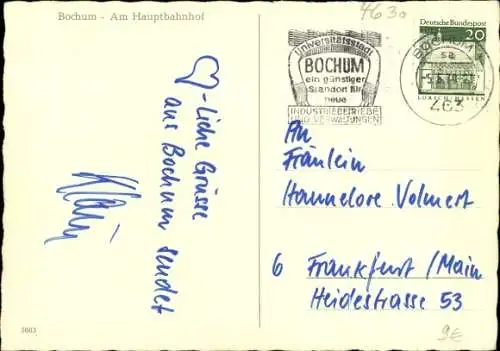 Bochum - Am Hauptbahnhof
4630
Universitätsstadt
BOCHUM
ein günstiger
Standort für
neue
INDUSTRIEBETRIEBE
UND VERWALTUNGEN
Deutsche Bundespost
20
BOCHUM
463
♡-liche Grüsse
aus Bochum sendet
An
Fräulein
Hannelore Volmert
6 Frankfurt/Main
Heidestrasse 53
5603
9€